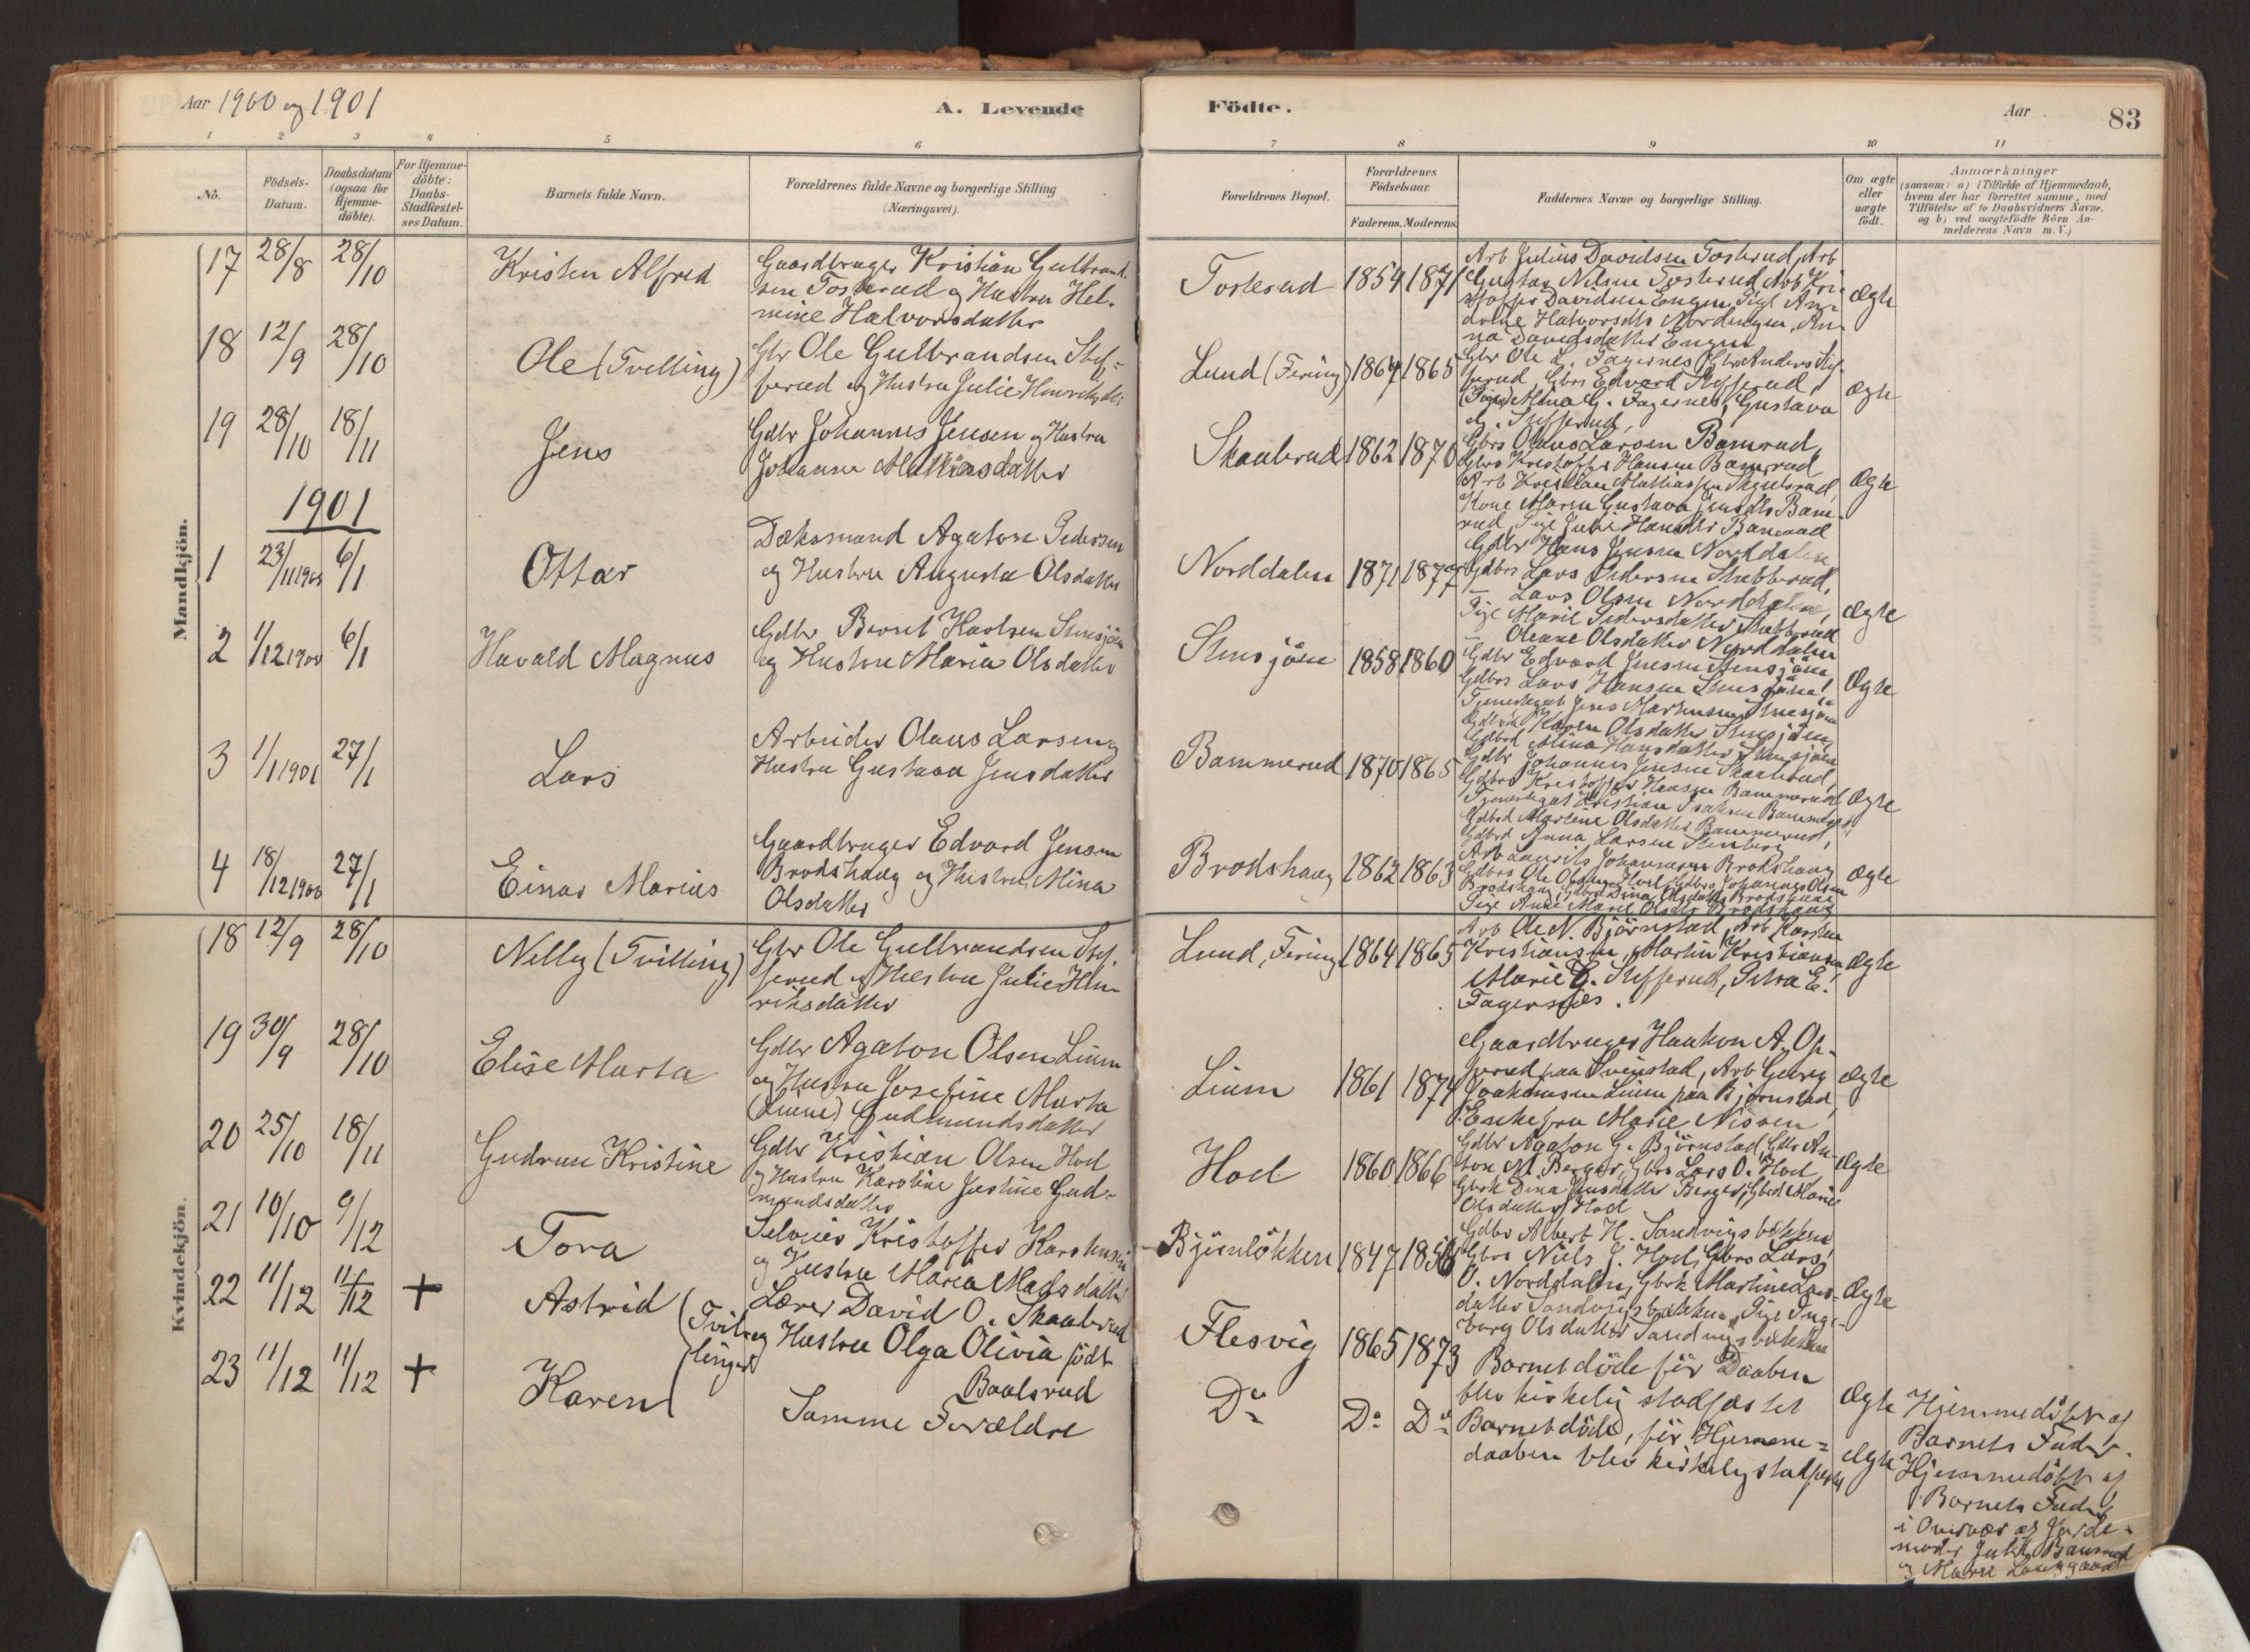 Aar 1900 og 1901
A. Levende
Födte.
Aar
83
1 2 3 4 5 6 7 8 9 10 11
No.
Födsels-
Datum.
Daabsdatum
(ogsaa for
Hjemme-
döbte).
For Hjemme-
döbte:
Daabs-
Stadfæstel-
ses Datum.
Barnets fulde Navn.
Forældrenes fulde Navne og borgerlige Stilling
(Næringsvei).
Forældrenes Bopæl.
Forældrenes
Födselsaar.
Faderens. Moderens.
Faddernes Navne og borgerlige Stilling.
Om ægte
eller
uægte
födt.
Anmærkninger
(saasom: a) i Tilfælde af Hjemmedaab,
hvem der har forrettet samme, med
Tilföielse af to Daabsvidners Navne,
og b) ved uægtefödte Börn An-
melderens Navn m. V.)
Mandkjön.
17 28/8 28/10 Kristen Alfred
Gaardbruger Kristian Gulbrand-
sen Tosterud og Hustru Hel-
mine Halvorsdatter
Tosterud 1854 1871
Arb Julius Davidsen Tosterud, Arb
Gustav Nilsen Tosterud, Arb Kri-
stoffer Davidsen Engen, Pige An-
drine Halvorsdtr Nordengen, An-
na Davidsdatter Engen
Ægte
18 12/9 28/10 Ole (Tvilling)
Gbr Ole Gulbrandsen Stef-
ferud og Hustru Julie Henriksdtr
Lund (Fering) 1864 1865
Gbr Ole L. Fagernes, Gbr Anders Stef-
ferud, Gbrs Edvard Stefferud,
Mina G. Fagernes, Gustava
Stefferud,
Ægte
19 28/10 18/11 Jens
Gdbr Johannes Jensen og Hustru
Johanne Mathiasdatter
Skaaberud 1862 1870
Gbrs Olaus Larsen Bamrud,
Gbrs Kristoffer Hansen Bamrud
Arb Kristian Mathiassen
Kone Maren Gustava Jensdtr Bam-
rud, Pige Hansdtr Bamrud
Ægte
1901
1 23/11 1900 6/1 Ottar
Dæksmand Agaton Pedersen
og Hustru Augusta Olsdatter
Norddalen 1871 1877
Gdbr Hans Jensen Norddalen
Gdbrs Lars Pedersen Stabberud,
– Lars Olsen Norddalen,
Pige Marie Pedersdatter Stabberud
– Oleane Olsdatter Norddalen
Ægte
2 1/12 1900 6/1 Harald Magnus
Gdbr Bernt Karlsen Stensjöen
og Hustru Maria Olsdatter
Stensjöen 1858 1860
Gdbr Edvard Jensen Stensjöen
Gdbrs Lars Hansen Stensjöen,
Tjenestegut Jens Martinsen Stensjöen
Karen Olsdatter Stensjöen,
Gdbrd Mina Hansdatter Stensjöen
Ægte
3 1/1 1901 27/1 Lars
Arbeider Olaus Larsen og
Hustru Gustava Jensdatter
Bammerud 1870 1865
Gdbr Johannes Jensen Skaaberud,
Gdbrs Kristoffer Hansen Bammerud
Tjenestegut Kristian Isaksen Bammerud,
Gdbrd Martine Olsdatter Bammerud,
Gdbrd Anna Larsen Stenberg
Ægte
4 18/12 1900 27/1 Einar Marius
Gaardbruger Edvard Jensen
Brodshaug og Hustru Mina
Olsdatter
Brodshaug 1862 1863
Arb Laurits Johannesen Brodshaug
Gdbrs Ole Olsen Hval, Gdbrs Johannes Olsen
Brodshaug, Gdbrd Dina Olsdatter Brodshaug
Pige Anne Marie Olsdtr Brodshaug
Ægte
Kvindekjön.
18 12/9 28/10 Nelly (Tvilling)
Gbr Ole Gulbrandsen Stef-
ferud og Hustru Julie Hen-
riksdatter
Lund, Fering 1864 1865
Arb Ole N. Björnstad, Arb Karsten
Kristiansen, Martin Kristiansen
Marie G. Stefferud, Petra E.
Fagernæs.
Ægte
19 30/9 28/10 Elise Marta
Gdbr Agaton Olsen Linm
og Hustru Josefine Marta
(Linne) Gudmundsdatter
Linm 1861 1874
Gaardbruger Haakon A. Op-
gerud paa Sveinstad, Arb Georg
Joakimsen Linm paa Björnstad,
Enkefru Marie Nissen
Ægte
20 25/10 18/11 Gudrun Kristine
Gdbr Kristian Olsen Hod
og Hustru Karoline Justine Gud-
mundsdatter
Hod 1860 1866
Gdbr Agaton G. Björnstad, Gdbr An-
ton M. Berger, Gbrs Lars O. Hod,
Gbrk Dina Jensdatter Berger, Gbrd Marie
Olsdatter Hod
Ægte
21 10/10 9/12 Tora
Selveier Kristoffer Karlsen
og Hustru Maria Madsdatter
Björnlökken 1847 1856
Gdbr Albert H. Sandvigsbakken
Gbrs Niels J. Hod, Gbrs Lars
O. Norddalen, Gbrk Martine Lars-
datter Sandvigsbakken, Pige Inge-
borg Olsdatter Sandvigsbakken
Ægte
22 11/12 11/12 + Astrid (Tvil-
linger)
Lærer David O. Skaaberud
og Hustru Olga Olivia født
Baalsrud
Flesvig 1865 1873
Barnet döde för Daaben
blev kirkelig stadfæstet
Ægte
Hjemmedöbt af
Barnets Fader.
23 11/12 11/12 + Karen
Samme Forældre
Do Do Do
Barnet döde, för Hjemme-
daaben blev kirkelig stadfæstet
Ægte
Hjemmedöbt af
Barnets Fader
i Overvær af Jorde-
moder Bamrud
og Marie